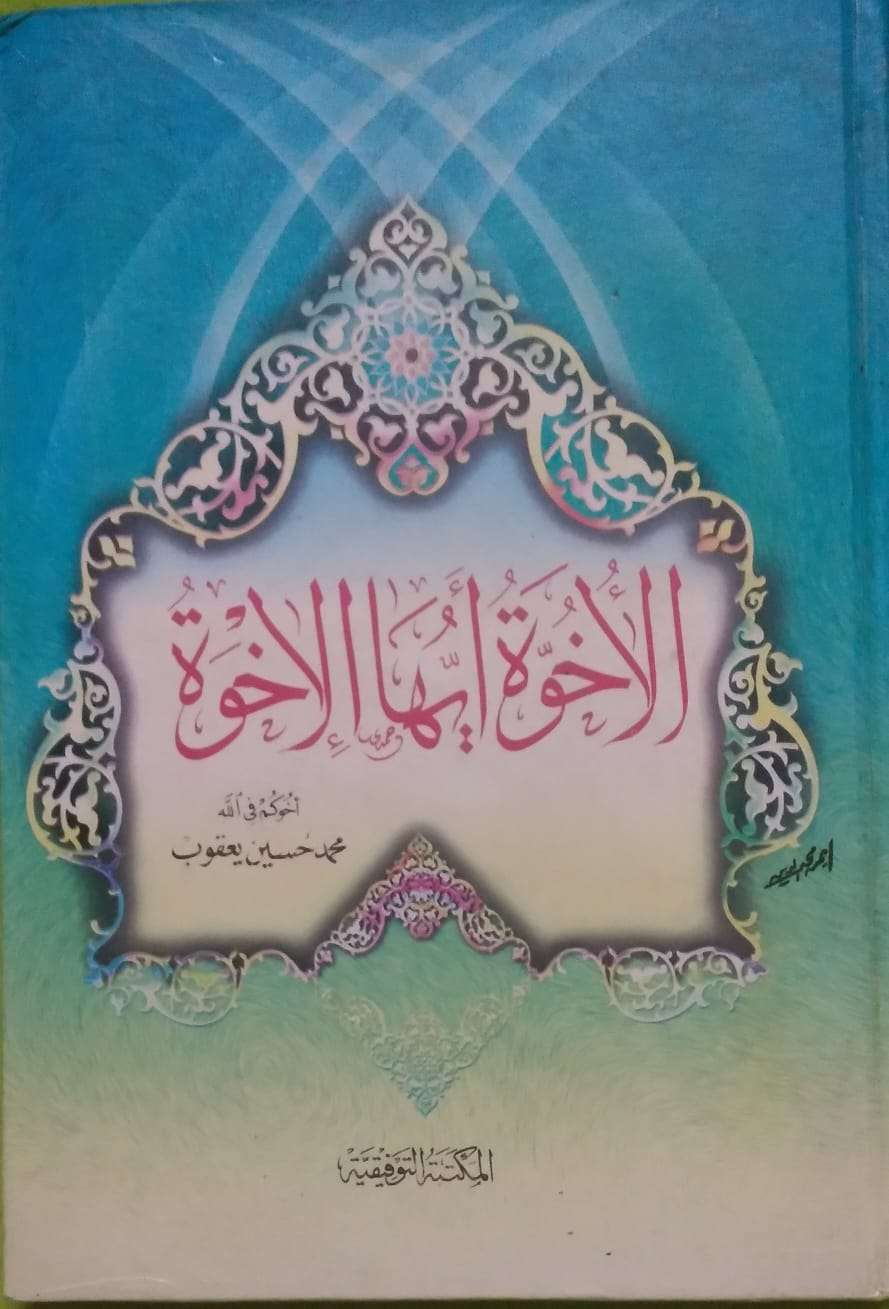 الأُخُوَّةُ أَيُّهَا الإِخْوَةُ
أخوكم في الله
محمد حسين يعقوب
المكتبة التوفيقية